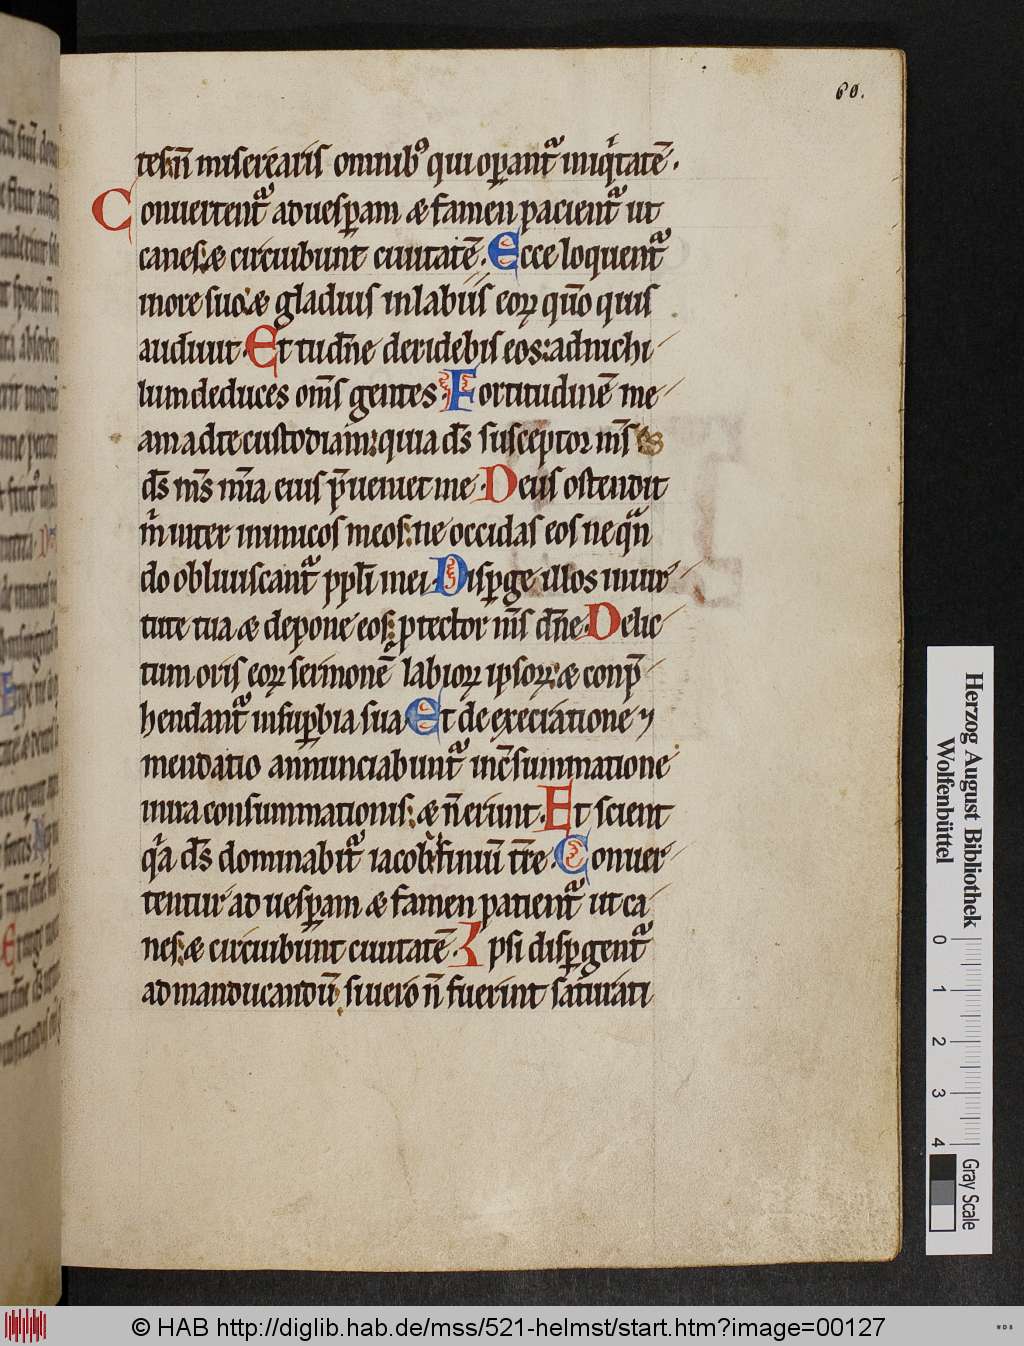 60.
tes: n̄ miserearis omnibꝰ qui op̄antᷓ iniqͥtatē.
Conuertentᷓ ad uesp̄am & famen pacientᷓ ut
canes: & circuibunt ciuitatē. Ecce loquentᷓ
in ore suo: & gladius in labiis eoꝝ qm̄o quis
audiuit. Et tu dn̄e deridebis eos: ad nichi-
lum deduces om̄s gentes. Fortitudinē me-
am ad te custodiam: quia d̄s susceptor m̄s es
d̄s m̄s m̄ia eius p̄ueniet me. Deus ostendit
m̄ inter inimicos meos: ne occidas eos ne qn̄
do obliuiscantᷓ ppl̄i mei. Disp̄ge illos in uir-
tute tua & depone eos: ptector m̄s dn̄e. Delic-
tum oris eoꝝ sermonē labioꝝ ipsoꝝ: & conp̄-
hendantᷓ in sup̄bia sua. Et de execratione ⁊
mendatio annunciabuntᷓ in c̄summatione
in ira consummationis: & n̄ erunt. Et scient
qͥa d̄s dominabitᷓ iacob: & finiū t̄re. Conuer-
tentur ad uesp̄am & famen patientᷓ ut ca-
nes: & circuibunt ciuitatē. Ipsi disp̄gentᷓ
ad manducandū: si uero n̄ fuerint saturati
Herzog August Bibliothek
Wolfenbüttel
0 1 2 3 4
Gray Scale
© HAB http://diglib.hab.de/mss/521-helmst/start.htm?image=00127